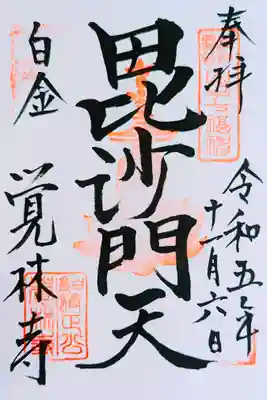 奉拝
令和五年
十一月六日
毘沙門天
白金
覚林寺